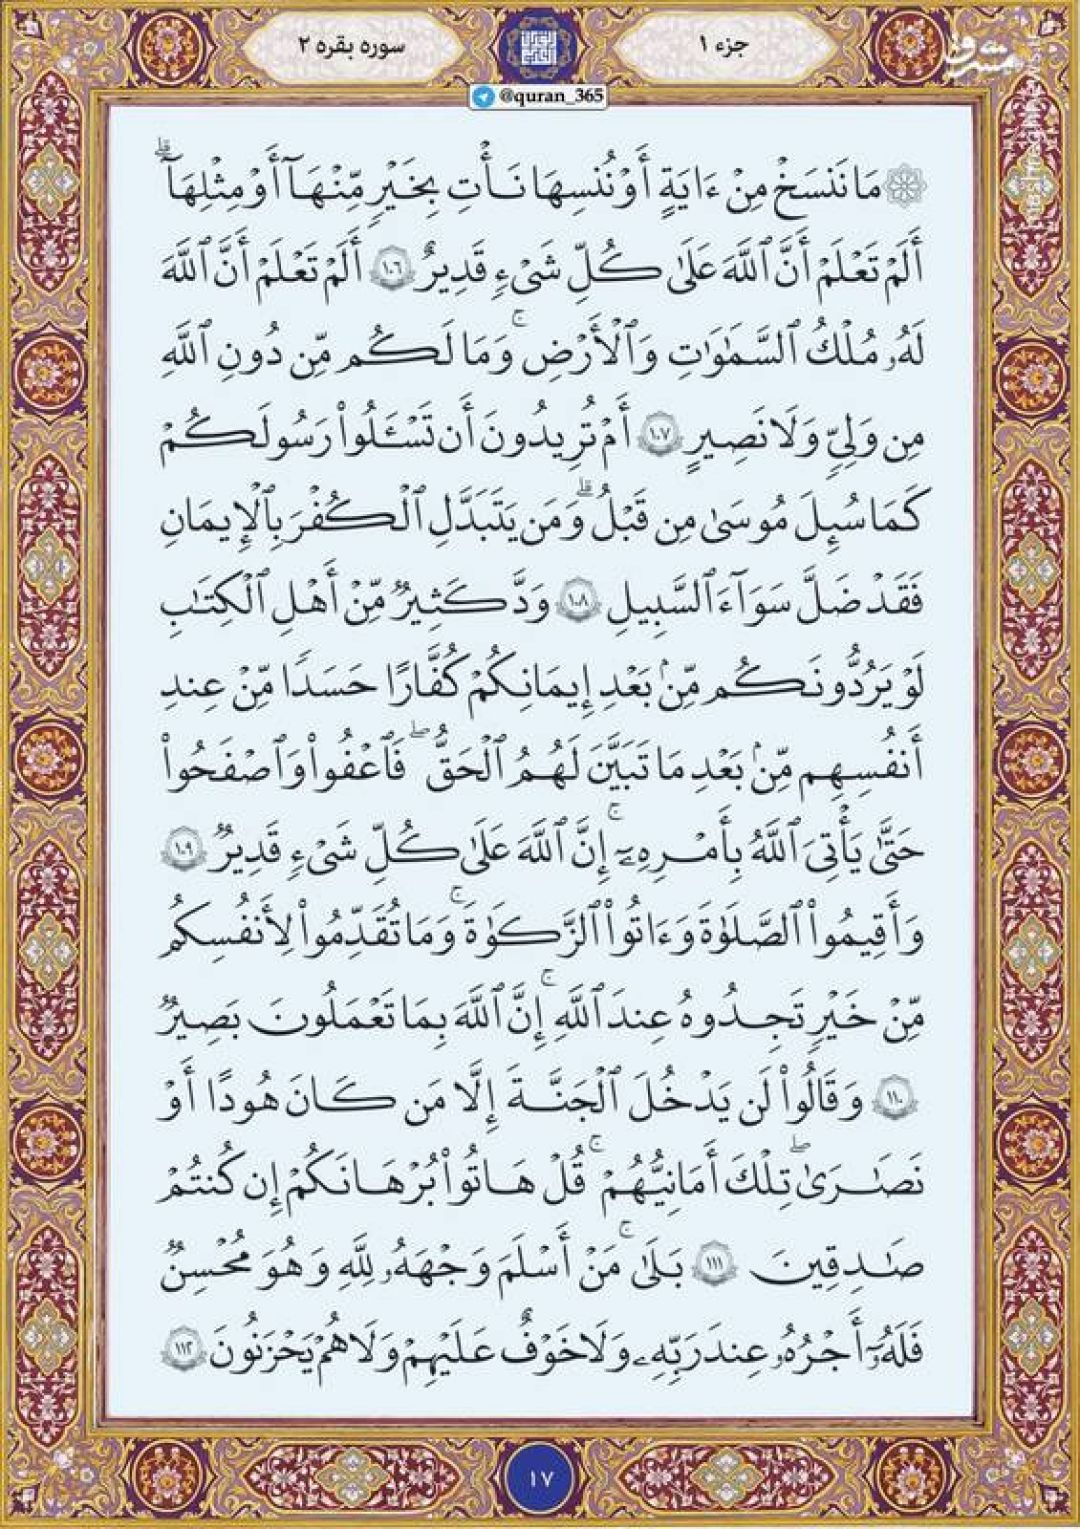 جزء ۱
سوره بقره ۲
@quran_365
مشرق
mashreghnews
۞ مَا نَنسَخْ مِنْ ءَايَةٍ أَوْ نُنسِهَا نَأْتِ بِخَيْرٍ مِّنْهَآ أَوْ مِثْلِهَآ ۗ
أَلَمْ تَعْلَمْ أَنَّ ٱللَّهَ عَلَىٰ كُلِّ شَىْءٍ قَدِيرٌ ١٠٦ أَلَمْ تَعْلَمْ أَنَّ ٱللَّهَ
لَهُۥ مُلْكُ ٱلسَّمَٰوَٰتِ وَٱلْأَرْضِ ۗ وَمَا لَكُم مِّن دُونِ ٱللَّهِ
مِن وَلِىٍّ وَلَا نَصِيرٍ ١٠٧ أَمْ تُرِيدُونَ أَن تَسْـَٔلُوا۟ رَسُولَكُمْ
كَمَا سُئِلَ مُوسَىٰ مِن قَبْلُ ۗ وَمَن يَتَبَدَّلِ ٱلْكُفْرَ بِٱلْإِيمَٰنِ
فَقَدْ ضَلَّ سَوَآءَ ٱلسَّبِيلِ ١٠٨ وَدَّ كَثِيرٌ مِّنْ أَهْلِ ٱلْكِتَٰبِ
لَوْ يَرُدُّونَكُم مِّنۢ بَعْدِ إِيمَانِكُمْ كُفَّارًا حَسَدًا مِّنْ عِندِ
أَنفُسِهِم مِّنۢ بَعْدِ مَا تَبَيَّنَ لَهُمُ ٱلْحَقُّ ۖ فَٱعْفُوا۟ وَٱصْفَحُوا۟
حَتَّىٰ يَأْتِىَ ٱللَّهُ بِأَمْرِهِۦٓ ۗ إِنَّ ٱللَّهَ عَلَىٰ كُلِّ شَىْءٍ قَدِيرٌ ١٠٩
وَأَقِيمُوا۟ ٱلصَّلَوٰةَ وَءَاتُوا۟ ٱلزَّكَوٰةَ ۚ وَمَا تُقَدِّمُوا۟ لِأَنفُسِكُم
مِّنْ خَيْرٍ تَجِدُوهُ عِندَ ٱللَّهِ ۗ إِنَّ ٱللَّهَ بِمَا تَعْمَلُونَ بَصِيرٌ
١١٠ وَقَالُوا۟ لَن يَدْخُلَ ٱلْجَنَّةَ إِلَّا مَن كَانَ هُودًا أَوْ
نَصَٰرَىٰ ۗ تِلْكَ أَمَانِيُّهُمْ ۗ قُلْ هَاتُوا۟ بُرْهَانَكُمْ إِن كُنتُمْ
صَٰدِقِينَ ١١١ بَلَىٰ ۚ مَنْ أَسْلَمَ وَجْهَهُۥ لِلَّهِ وَهُوَ مُحْسِنٌ
فَلَهُۥٓ أَجْرُهُۥ عِندَ رَبِّهِۦ وَلَا خَوْفٌ عَلَيْهِمْ وَلَا هُمْ يَحْزَنُونَ ١١٢
١٧